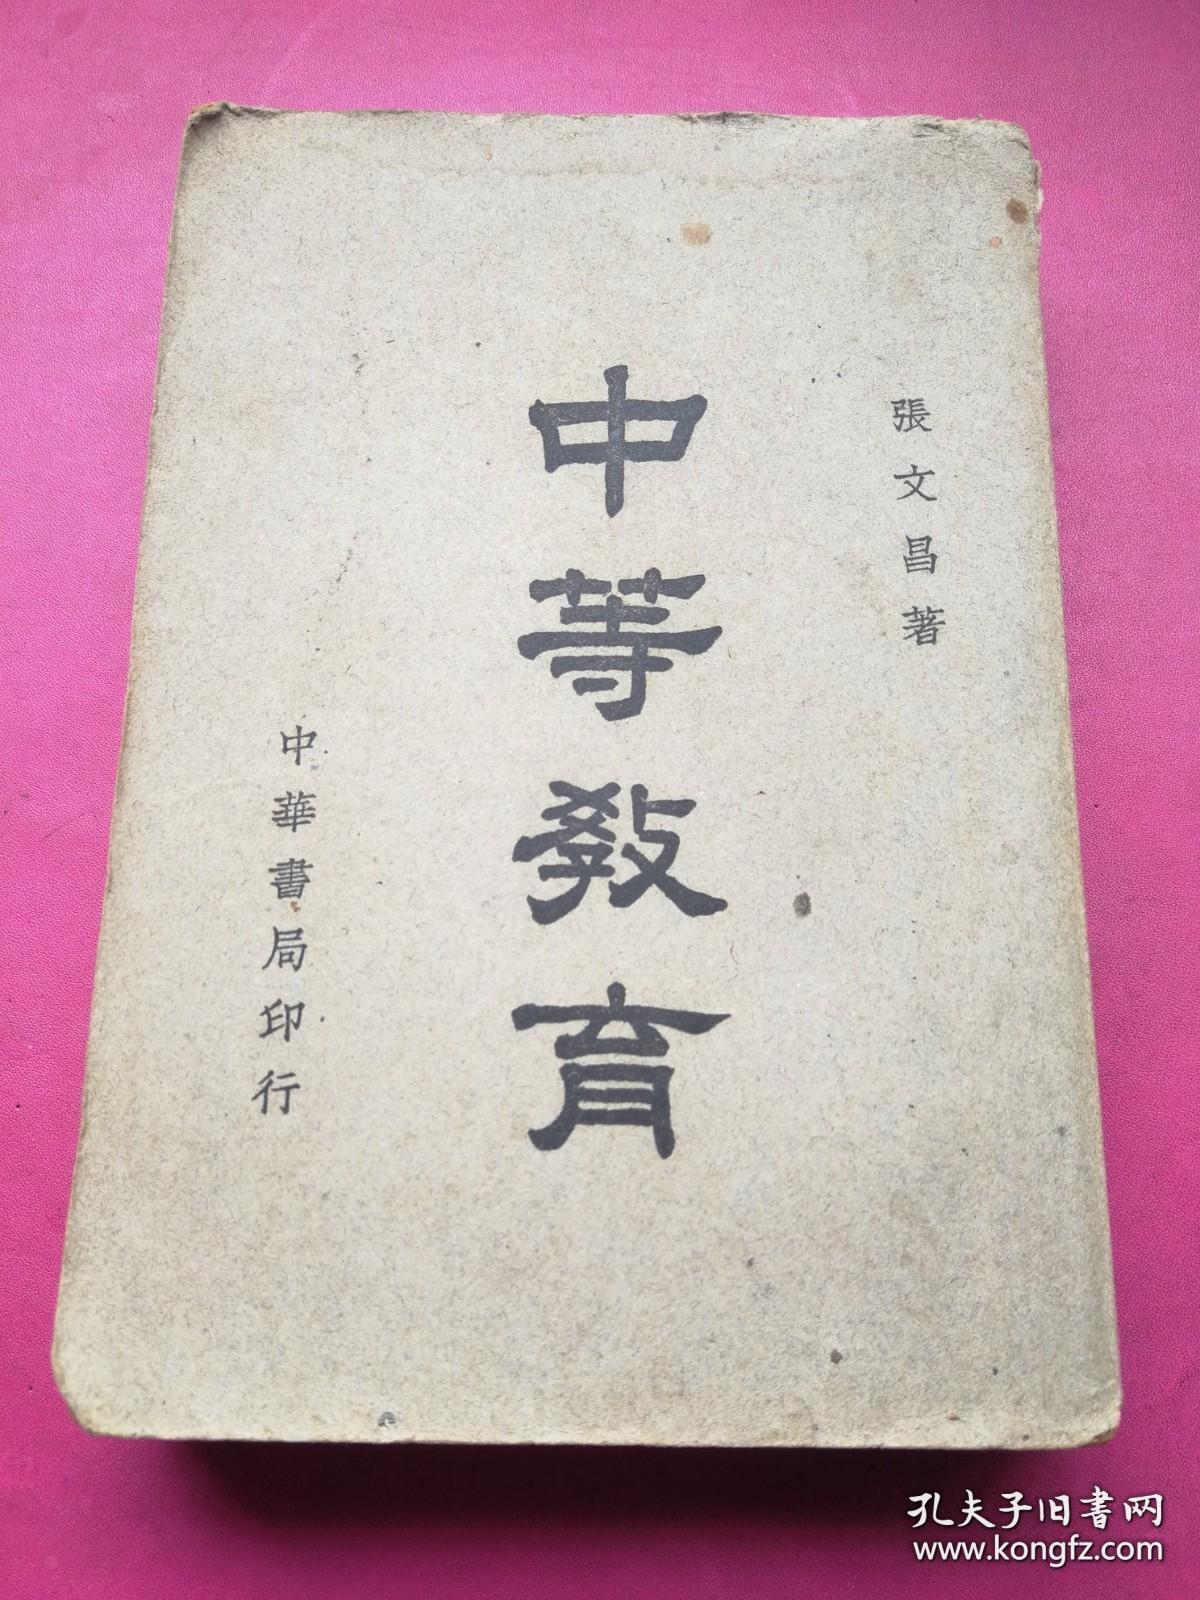 張文昌著
中等教育
中華書局印行
孔夫子旧書网
www.kongfz.com